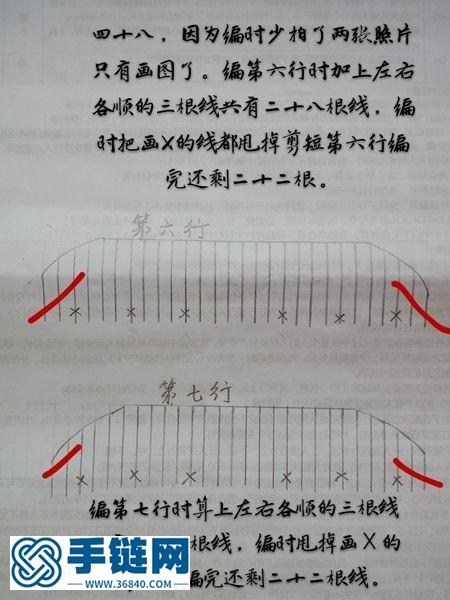 四十八，因为编时少拍了两张照片
只有画图了。编第六行时加上左右
各顺的三根线共有二十八根线，编
时把画X的线都甩掉剪短第六行编
完还剩二十二根。
第六行
第七行
编第七行时算上左右各顺的三根线
根线，编时甩掉画X的
编完还剩二十二根线。
手链网
www.36840.com